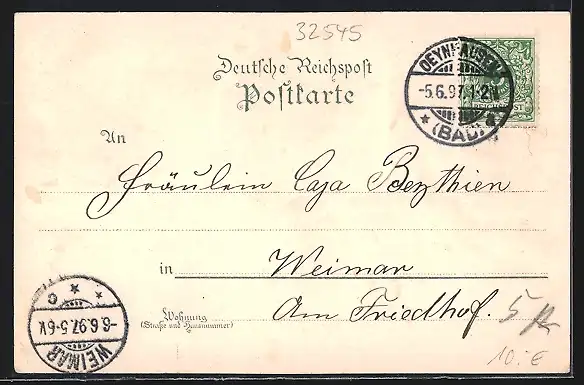 32545
Deutsche Reichspost
Postkarte
OEYNHAUSEN
-5.6.97.1-2N.
* (BAD) a
REICHSPOST
An
Fräulein Caja Bezthien
in Weimar
Wohnung
(Straße und Hausnummer)
Am Friedhof.
* * C
-6.6.97.5-6V.
WEIMAR
10.-€